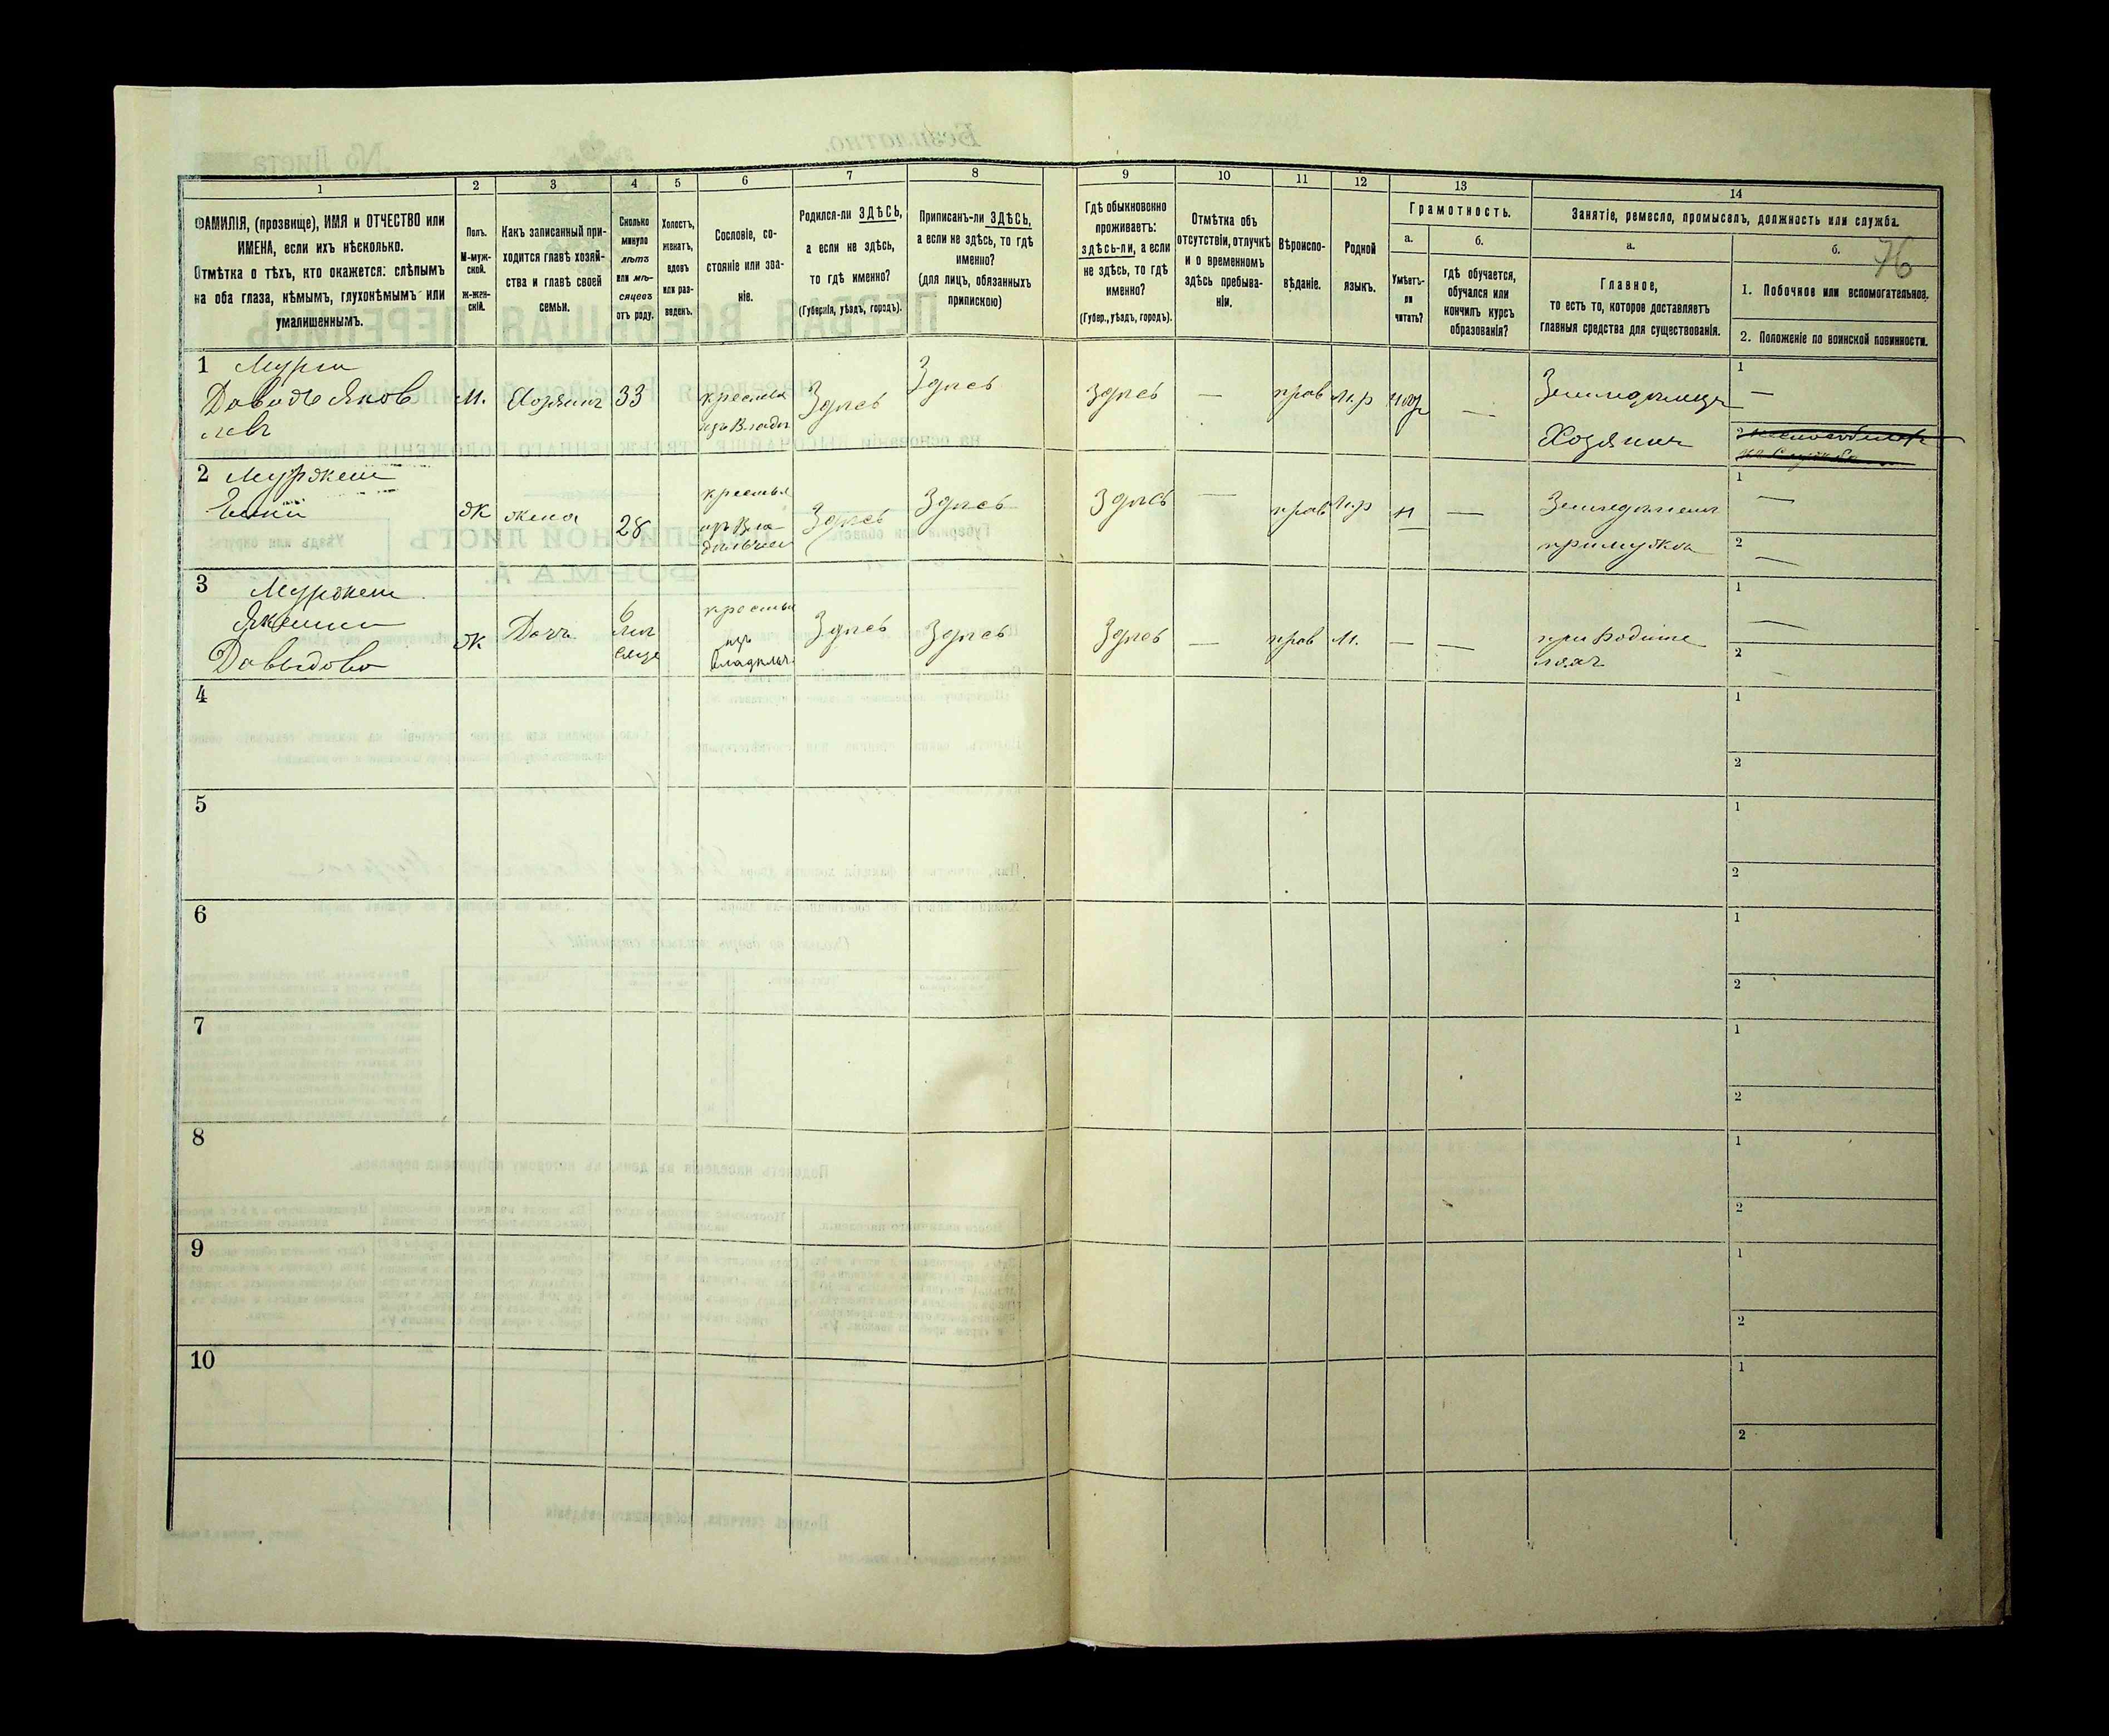 1 2 3 4 5 6 7 8 9 10 11 12 13 14
ФАМИЛІЯ, (прозвище), ИМЯ и ОТЧЕСТВО или
ИМЕНА, если ихъ нѣсколько.
Отмѣтка о тѣхъ, кто окажется: слѣпымъ
на оба глаза, нѣмымъ, глухонѣмымъ или
умалишеннымъ.
Полъ.
М-муж-
ской.
Ж-жен-
скій.
Какъ записанный при-
ходится главѣ хозяй-
ства и главѣ своей
семьи.
Сколько
минуло
лѣтъ
или мѣ-
сяцевъ
отъ роду.
Холостъ,
женатъ,
вдовъ
или раз-
веденъ.
Сословіе, со-
стояніе или зва-
ніе.
Родился-ли ЗДѢСЬ,
а если не здѣсь,
то гдѣ именно?
(Губернія, уѣздъ, городъ).
Приписанъ-ли ЗДѢСЬ,
а если не здѣсь, то гдѣ
именно?
(для лицъ, обязанныхъ
припискою)
Гдѣ обыкновенно
проживаетъ:
здѣсь-ли, а если
не здѣсь, то гдѣ
именно?
(Губер., уѣздъ, городъ).
Отмѣтка объ
отсутствіи, отлучкѣ
и о временномъ
здѣсь пребыва-
ніи.
Вѣроиспо-
вѣданіе.
Родной
языкъ.
Грамотность.
а.
Умѣетъ-
ли
читать?
б.
гдѣ обучается,
обучался или
кончилъ курсъ
образованія?
Занятіе, ремесло, промыселъ, должность или служба.
а.
Главное,
то есть то, которое доставляетъ
главныя средства для существованія.
б.
76
1. Побочное или вспомогательное.
2. Положеніе по воинской повинности.
1
Давидъ Яков
левъ
м.
Хозяинъ
33
крестья
изъ Владѣл
Здѣсь
Здѣсь
Здѣсь
—
прав
м.р
—
Земледѣлецъ
Хозяинъ
1
—
2
2
ж
жена
28
крестья
изъ Вла-
дѣльчес
Здѣсь
Здѣсь
Здѣсь
—
прав
м.р
н
—
1
—
2
—
3
Давыдова
ж
Дочь
6
мѣс
сяце
крестья
изъ
владѣльч.
Здѣсь
Здѣсь
Здѣсь
—
прав
м.
—
—
при Родите
ляхъ
1
—
2
—
4
1
2
5
1
2
6
1
2
7
1
2
8
1
2
9
1
2
10
1
2